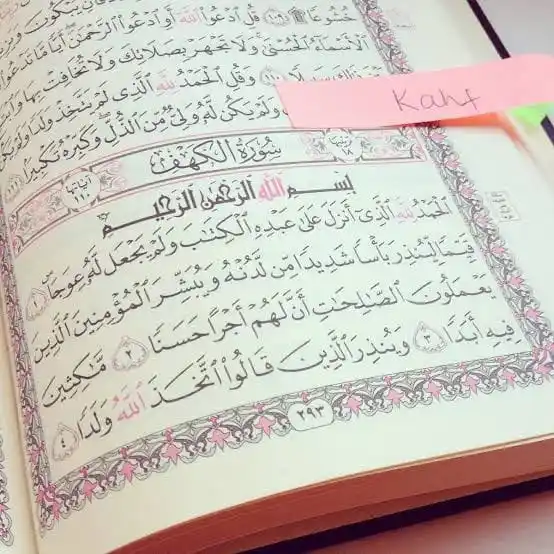 خُشُوعًا ۩ ﴿١٠٩﴾ قُلِ ٱدْعُوا۟ ٱللَّهَ أَوِ ٱدْعُوا۟ ٱلرَّحْمَٰنَ ۖ أَيًّا مَّا تَدْعُوا۟
ٱلْأَسْمَآءُ ٱلْحُسْنَىٰ ۚ وَلَا تَجْهَرْ بِصَلَاتِكَ وَلَا تُخَافِتْ بِهَا
سَبِيلًا ﴿١١٠﴾ وَقُلِ ٱلْحَمْدُ لِلَّهِ ٱلَّذِى لَمْ يَتَّخِذْ وَلَدًا وَلَمْ يَكُن
وَلَمْ يَكُن لَّهُۥ وَلِىٌّ مِّنَ ٱلذُّلِّ ۖ وَكَبِّرْهُ تَكْبِيرًۢا ﴿١١١﴾
Kahf
آياتها ١١٠ سُورَةُ الكَهْفِ
بِسْمِ ٱللَّهِ ٱلرَّحْمَٰنِ ٱلرَّحِيمِ
ٱلْحَمْدُ لِلَّهِ ٱلَّذِىٓ أَنزَلَ عَلَىٰ عَبْدِهِ ٱلْكِتَٰبَ وَلَمْ يَجْعَل لَّهُۥ عِوَجَاۜ ﴿١﴾
قَيِّمًا لِّيُنذِرَ بَأْسًا شَدِيدًا مِّن لَّدُنْهُ وَيُبَشِّرَ ٱلْمُؤْمِنِينَ ٱلَّذِينَ
يَعْمَلُونَ ٱلصَّٰلِحَٰتِ أَنَّ لَهُمْ أَجْرًا حَسَنًا ﴿٢﴾ مَّٰكِثِينَ
فِيهِ أَبَدًا ﴿٣﴾ وَيُنذِرَ ٱلَّذِينَ قَالُوا۟ ٱتَّخَذَ ٱللَّهُ وَلَدًا ﴿٤﴾
٢٩٣